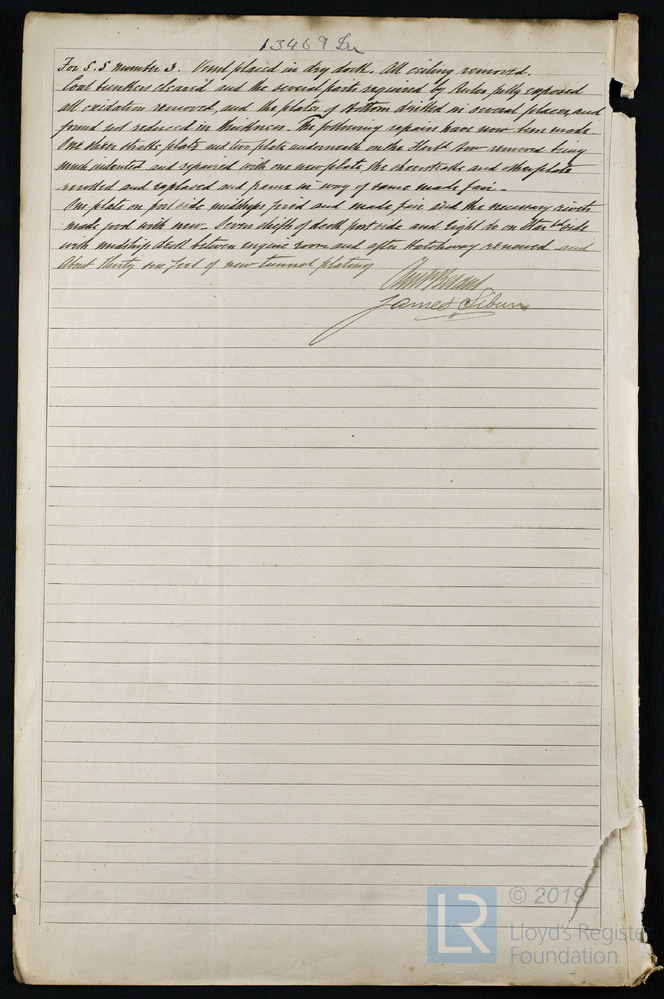 13469 Ln
For S.S number 3. Vessel placed in dry dock. All ceiling removed.
Coal bunkers cleared and the several parts required by Rules fully exposed
all oxidation removed, and the plates of bottom drilled in several places, and
found not reduced in thickness. The following repairs have now been made
One sheer strake plate and two plates underneath on the Starbd bow removed being
much indented and repaired with one new plate, the sheerstrake and other plate
rerolled and replaced and frames in way of same made fair.
One plate on port side midships faired and made fair and the necessary rivets
made good with new. Seven shifts of deck port side and Eight do on Starbd side
with midship deck between engine room and after Hatchway renewed and
About thirty six feet of new tunnel plating
James
© 2019
LR
Lloyd's Register
Foundation